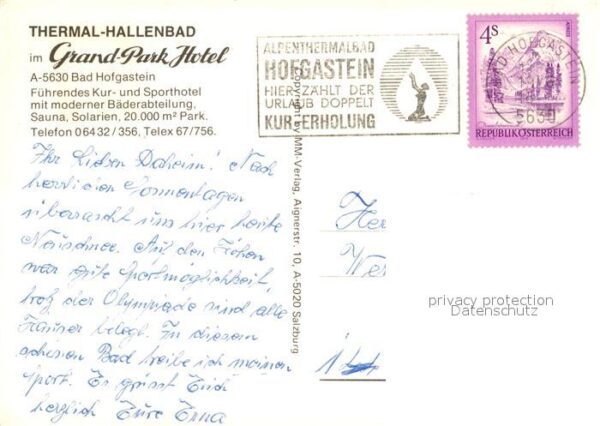 THERMAL-HALLENBAD
im Grand-Park Hotel
A-5630 Bad Hofgastein
Führendes Kur- und Sporthotel
mit moderner Bäderabteilung,
Sauna, Solarien, 20.000 m² Park.
Telefon 06432/356, Telex 67/756.
Ihr Lieben Daheim! Nach
herrlichen Sonnentagen
überrascht uns hier heute
Neuschnee. Auf den Höhen
war gute Sportmöglichkeit,
trotz der Olympiade sind alle
Häuser belegt. In diesem
schönen Bad treibe ich meinen
Sport. Es grüsst Euch
herzlich Eure Erna
Copyright by MM-Verlag, Aignerstr. 10, A-5020 Salzburg
ALPENTHERMALBAD
HOFGASTEIN
HIER ZÄHLT DER
URLAUB DOPPELT
KUR-ERHOLUNG
BAD HOFGASTEIN
5630
4s
REPUBLIK ÖSTERREICH
Her
Wer
privacy protection
Datenschutz